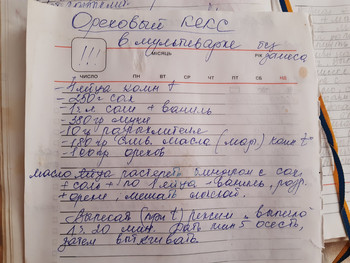 Ореховый кекс
в мультиварке без
замеса
!!!
МЕСЯЦ
ЧИСЛО ПН ВТ СР ЧТ ПТ СБ ВС
яйца комн t
- 250 г сах
соли + ваниль
- 380 гр муки
- 10 г разрыхлителя
- 180 гр слив. масло (мар) комн t
- 100 гр орехов
масло растереть с сах
+ соль + по 1 яйцу + ваниль, разр.
+ орехи, мешать
Выпекать режим выпечка
1 ч. 20 мин. Дать мин 5 осесть,
затем вытягивать.